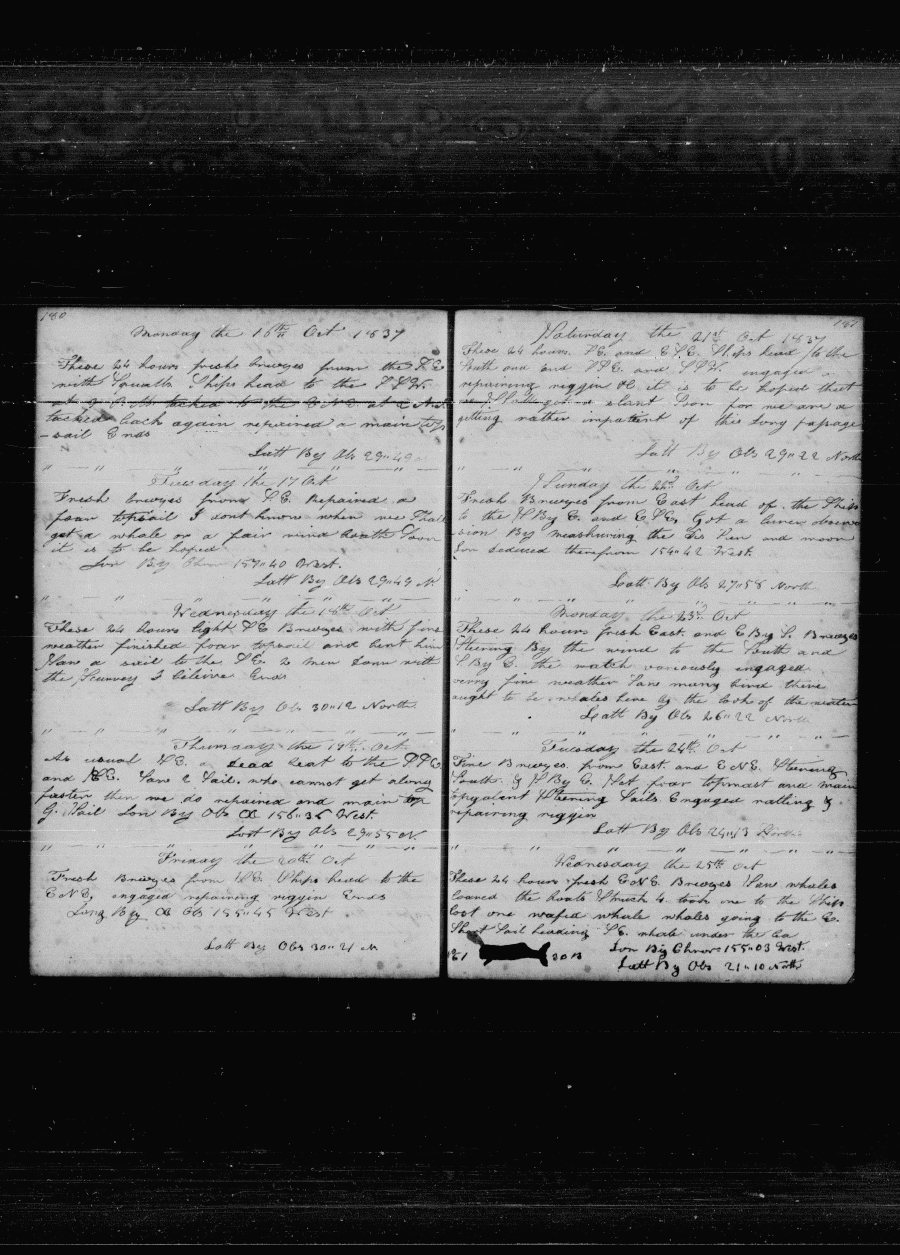 180
Monday the 16th Oct 1837
These 24 hours fresh breezes from the S.E
with Squalls Ships head to the S.S.W.
tacked to the E N E at
tacked back again repaired a main top
-sail Ends
Latt By Obs 29"49
Tuesday the 17 Oct
Fresh breezes from S.E. Repaired a
foar topsail I dont know when we Shall
get a whale or a fair wind Soon
it is to be hoped
Lon By Chro 157"40 West.
Latt By Obs 29"49 N
Wednesday the 18th Oct
These 24 hours light S E Breezes with fine
weather finished foar topsail and bent him
Saw a sail to the S.E. 2 men down with
the Scurvey I beleive Ends
Latt By Obs 30"12 North
Thursday the 19th Oct.
As usual S.E. a dead beat to the S S E
and N.E. Saw 2 Sail, who cannot get along
faster then we do repaired and main top
G. Sail Lon By Obs 156"35 West.
Latt By Obs 29"55 N
Friday the 20th Oct
Fresh Breezes from S E Ships head to the
E N E, engaged repairing riggin Ends
Long By Ob 155"45 West
Latt By Obs 30"21 N
181
Saturday the 21st Oct 1837
These 24 hours. S E. and E S.E. Ships head to the
South and and S S E and S S W. engaged
repairing riggin &c it is to be hoped that
we Shall good slant Soon for we are a
getting rather impatient of this Long passage
Latt By Obs 29"22 North
Sunday the 22d Oct
Fresh Breezes from East head of the Ship
to the S By E. and E S E, Got a Luner observa
-sion By meashuring the Sun and moon
Lon deduced therefrom 154"42 West
Latt By Obs 27"58 North
Monday the 23d Oct
These 24 hours fresh East. and E By S. Breezes
Steering By the wind to the South and
S By E. the watch variously engaged
verry fine weather Saw meny bird there
ought to be whales here by the look of the weather
Latt By Obs 26"22 North
Tuesday the 24th Oct
Fine Breezes. from East. and E N E. Steering
South. & S By E. Set foar topmast and main
topgalent Steering Sails. Engaged rattling &
repairing riggin
Latt By Obs 24"13 North
Wednesday the 25th Oct
These 24 hours fresh E N E. Breezes Saw whales
Loared the boats Struck 4. took one to the Ship
lost one waifed whale whales going to the E.
Short Sail heading S E. whale under the Lea
30 B Lon By Chroe 155"03 West.
Latt By Obs 21"10 North